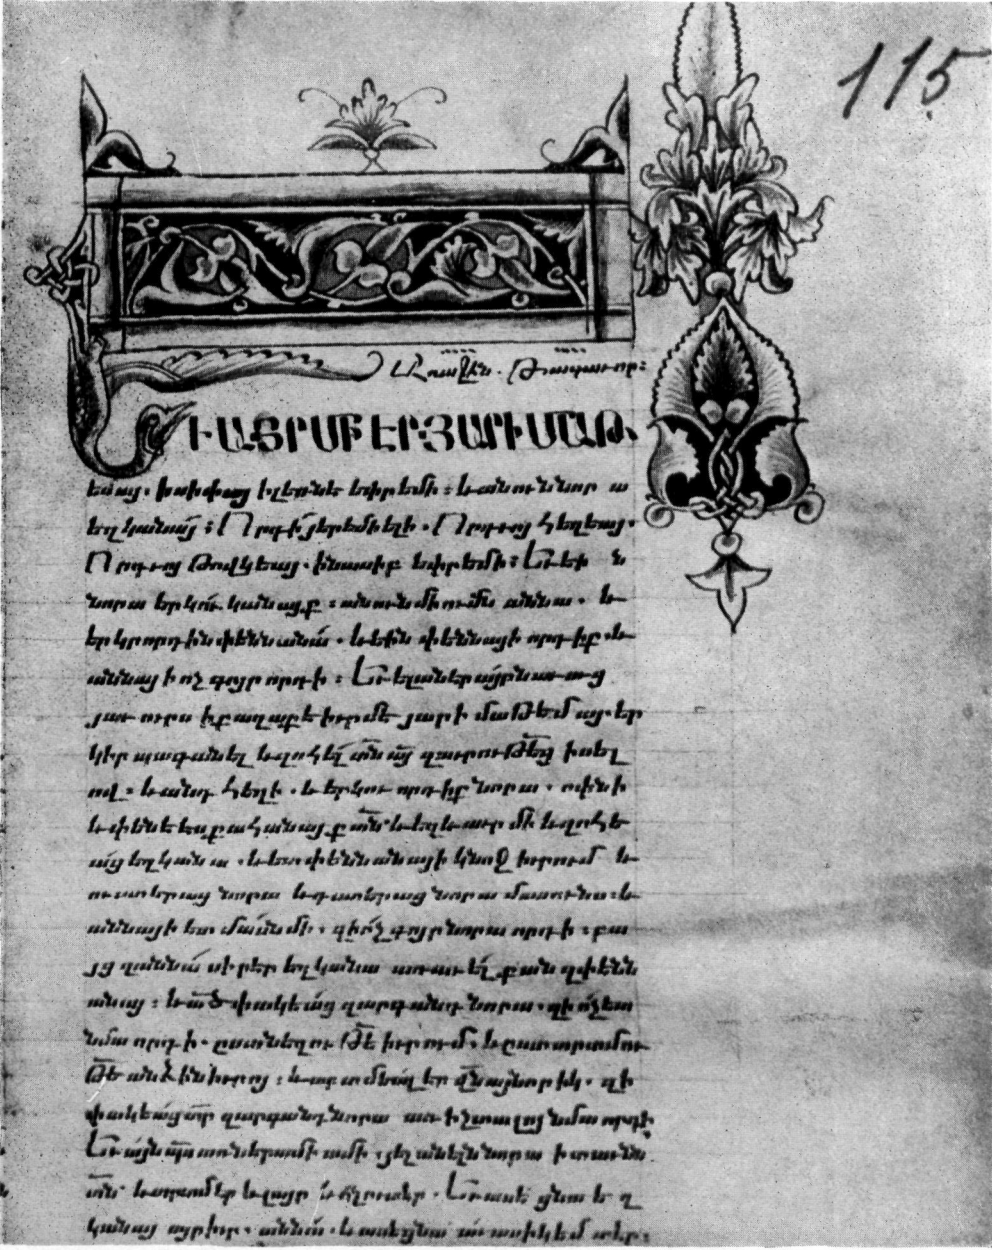 115
Առաջին. Թագաւոր:
ԱՅՐՄԻ ԷՐ ՅԱՐԻՄԱԹ
եմայ. իսիփայ իլեռնէ եփրեմի : և անուն նոր ա
եղկանայ : Որդի յերեմիէլի . Որդւոյ հեղեայ.
Որդւոյ Թովկեայ. ինասիբ եփրեմի : Եւ էի ն
նորա երկու կանայք : անուն միումն աննա . և
երկրորդին փէննանա . և էին փէննայի որդիք . և
աննայի ոչ գոյր որդի : Եւ ելանէր այրն աւուրց
յաւուրս իքաղաքէ իւրմէ յարիմաԹեմայ. եր
կիր պագանել և զոհել տն այ զաւրուԹեց իսել
ով : և անդ հեղի . և երկու որդիք նորա . ոփնի
և փենեէս քահանայք տն . և եղև աւր մի և զոհե
աց եղկանա . և ետ փէննանայի կնոջ իւրում և
ուստերաց նորա և դստերաց նորա մասունս : և
աննայի ետ մասն մի . զի ոչ գոյր նորա որդի : բա
յց զաննա սիրէր եղկանա առաւել քան զփէնն
անայ : և ած փակեաց զարգանդ նորա . զի ոչ ետ
նմա որդի . ըստ նեղու Թե իւրում . և ըստ տրտմու
Թե անձին իւրոյ :
փակեաց տր զարգանդ նորա առ ի չտալոյ նմա որդի
Եւ այնպս առնէր ամի ամի . յելանելն նորա ի տունն
տն . և տրտմէր և լայր և ոչ ուտէր . Եւ ասէ ցնա ե ղ
կանայ այր իւր . աննա . և ասէ ցնա աւասիկ եմ տէր :